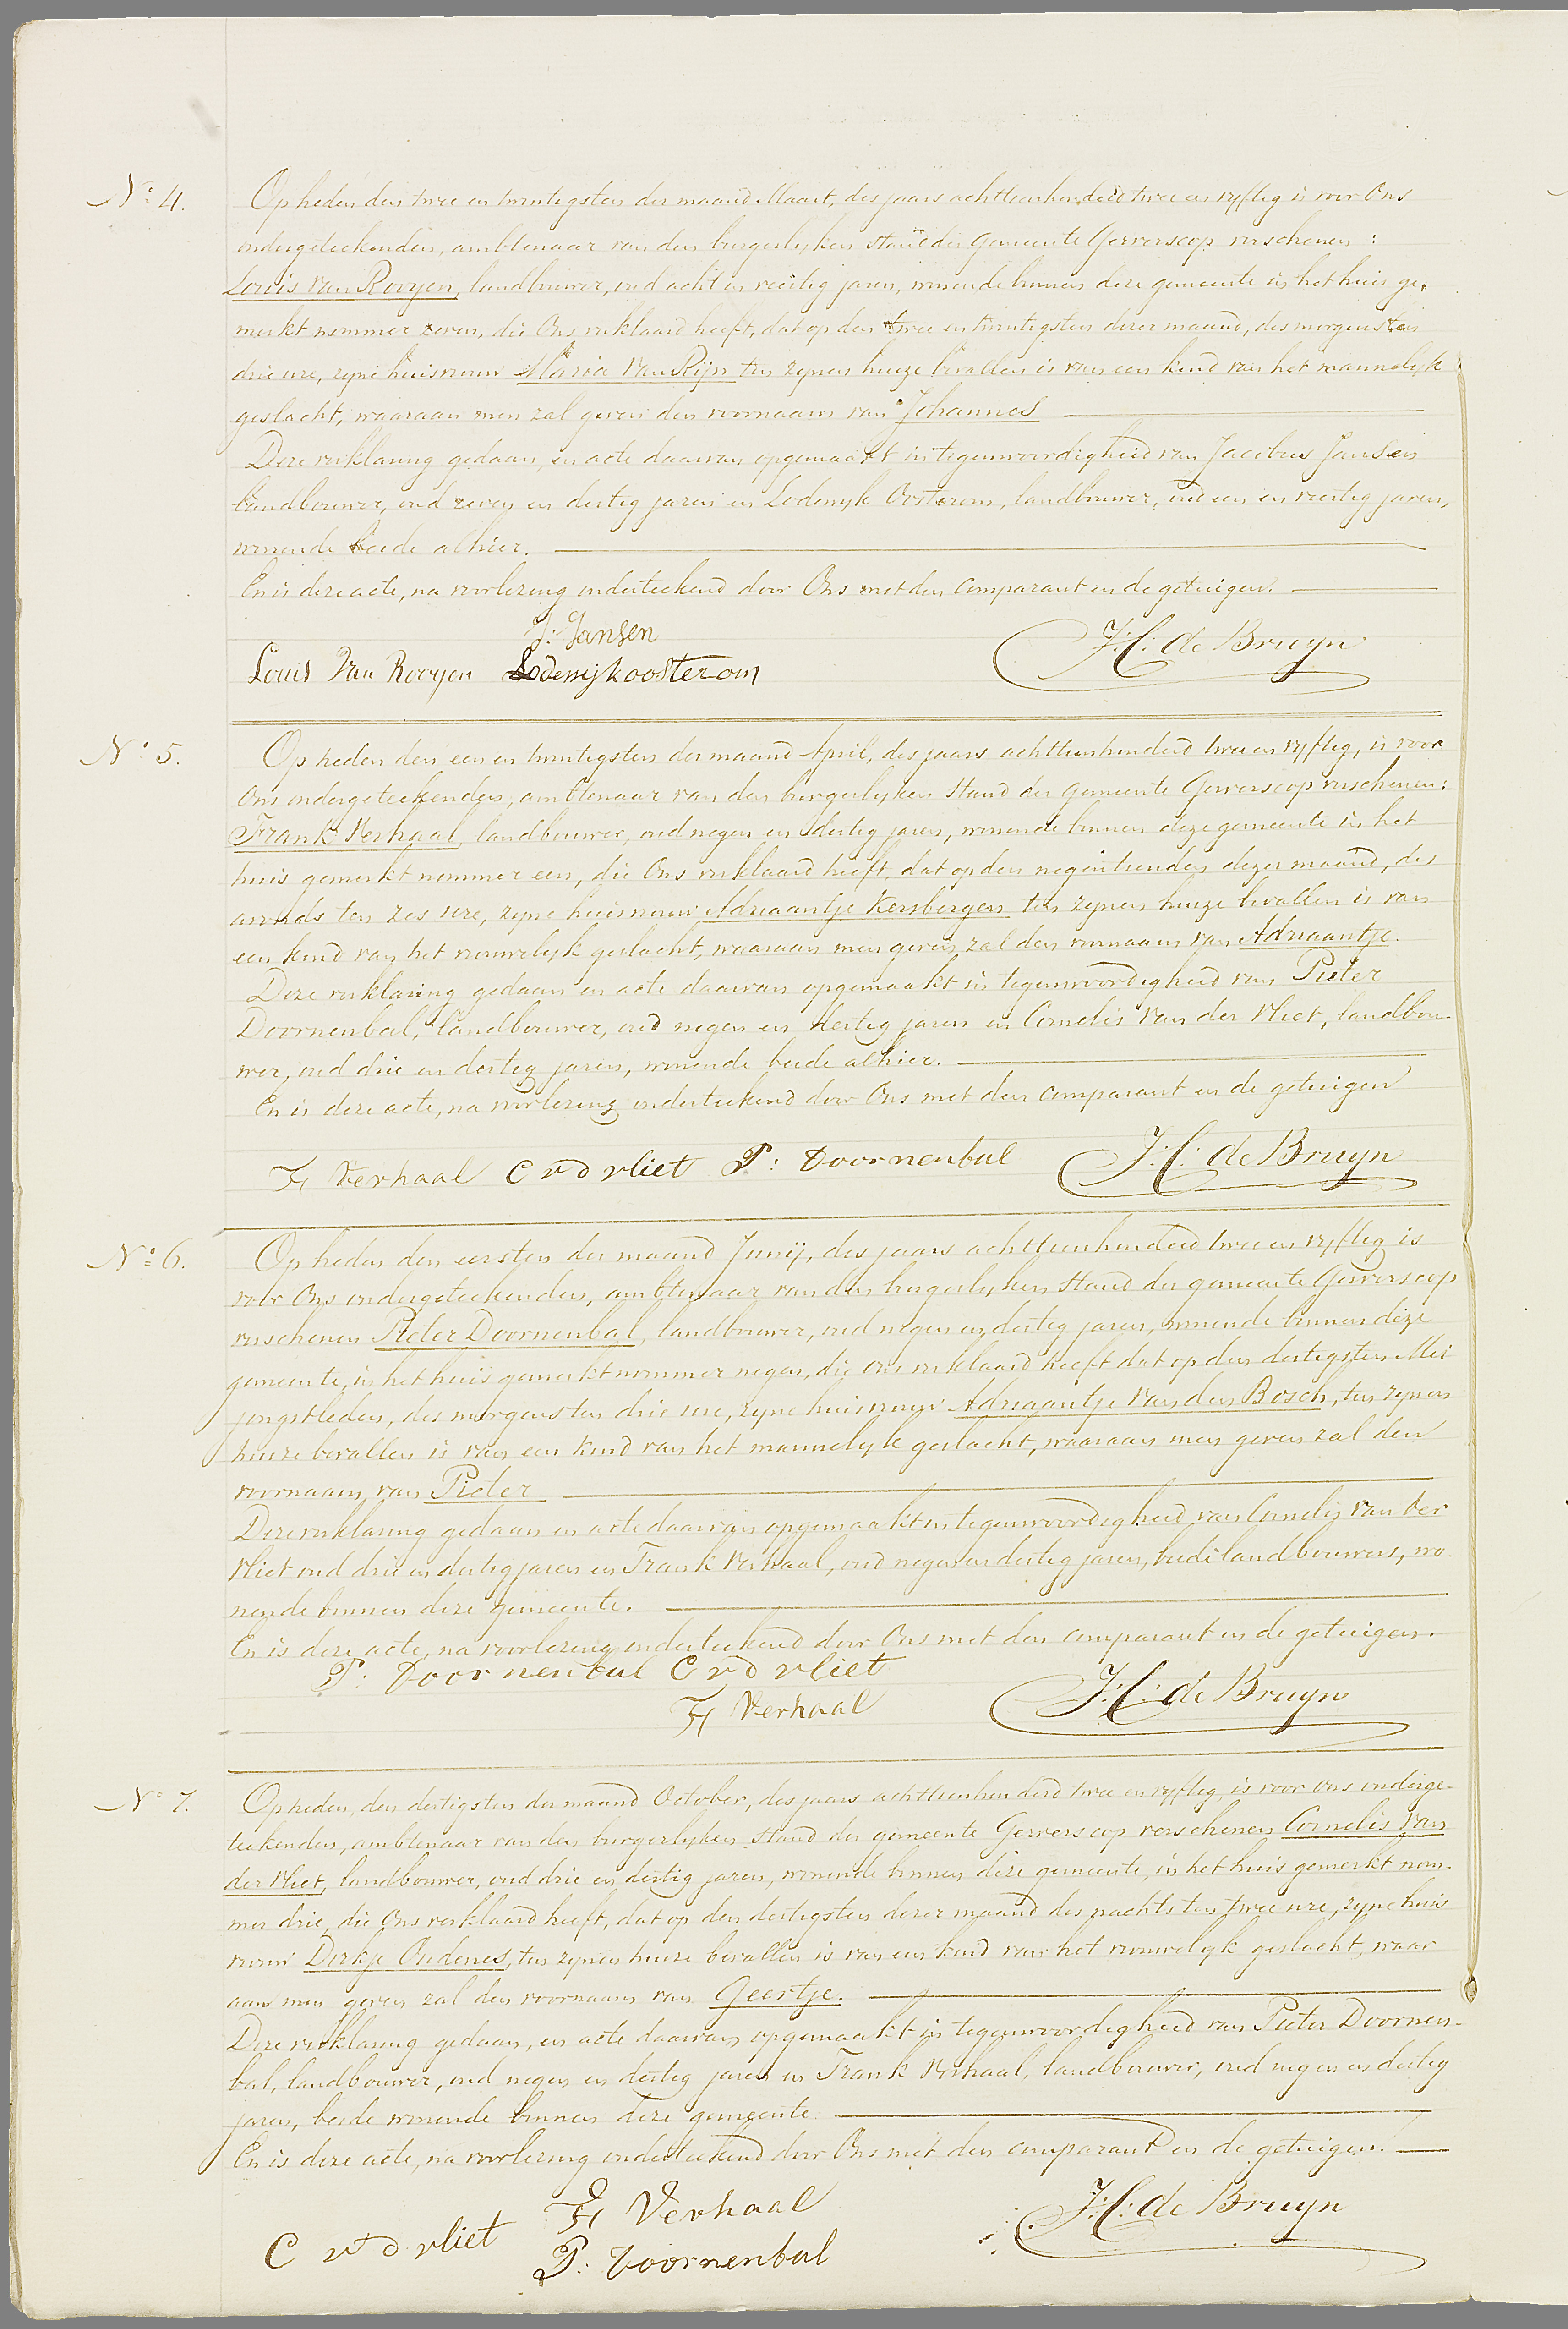 Nº 4.
Op heden den twee en twintigsten der maand Maart, des jaars achttienhonderd twee en vyftig is voor Ons
ondergeteekenden, ambtenaar van den burgerlyken stand der Gemeente Gerverscop verschenen:
Louis van Rooyen, landbouwer, oud acht en veertig jaren, wonende binnen deze gemeente in het huis ge-
merkt nommer zeven, die Ons verklaard heeft, dat op den twee en twintigsten dezer maand, des morgens ten
drie ure, zyne huisvrouw Maria Van Rijn ten zynen huize bevallen is van een kind van het mannelyk
geslacht, waaraan men zal geven den voornaam van Johannes
Deze verklaring gedaan, en acte daarvan opgemaakt in tegenwoordigheid van Jacobus Jansen
landbouwer, oud zeven en dertig jaren en Lodewyk Oosterom, landbouwer, oud een en veertig jaren,
wonende beide alhier.
En is deze acte, na voorlezing onderteekend door Ons met den comparant en de getuigen.
J: Jansen
Louis Van Rooyen Lodewijk oosterom J: C: de Bruyn
Nº 5.
Op heden den een en twintigsten der maand April, des jaars achttienhonderd twee en vyftig, is voor
Ons ondergeteekenden, ambtenaar van den burgerlyken Stand der gemeente Gerverscop verschenen:
Frank Verhaal, landbouwer, oud negen en dertig jaren, wonende binnen deze gemeente in het
huis gemerkt nommer een, die Ons verklaard heeft, dat op den negentienden dezer maand, des
avonds ten zes ure, zyne huisvrouw Adriaantje Kersbergen ten zynen huize bevallen is van
een kind van het vrouwelyk geslacht, waaraan men geven zal den voornaam van Adriaantje.
Deze verklaring gedaan en acte daarvan opgemaakt in tegenwoordigheid van Pieter
Doornenbal, landbouwer, oud negen en dertig jaren en Cornelis Van der Vliet, landbou-
wer, oud drie en dertig jaren, wonende beide alhier.
En is deze acte, na voorlezing onderteekend door Ons met den comparant en de getuigen
F Verhaal C v d vliet P: Doornenbal J: C: de Bruyn
Nº 6.
Op heden den eersten der maand Junij, des jaars achttienhonderd twee en vyftig is
voor Ons ondergeteekenden, ambtenaar van den burgerlyken Stand der gemeente Gerverscop
verschenen Pieter Doornenbal, landbouwer, oud negen en dertig jaren, wonende binnen deze
gemeente, in het huis gemerkt nommer negen, die Ons verklaard heeft dat op den dertigsten Mei
jongstleden, des morgens ten drie ure, zyne huisvrouw Adriaantje Van den Bosch, ten zynen
huize bevallen is van een kind van het mannelyk geslacht, waaraan men geven zal den
voornaam van Pieter
Deze verklaring gedaan en acte daarvan opgemaakt in tegenwoordigheid van Cornelis van der
Vliet oud drie en dertig jaren en Frank Verhaal, oud negen en dertig jaren, beide landbouwers, wo-
nende binnen deze gemeente.
En is deze acte, na voorlezing onderteekend door Ons met den comparant en de getuigen.
P: Doornenbal C v d vliet
F Verhaal J: C: de Bruyn
Nº 7.
Op heden, den dertigsten der maand October, des jaars achttienhonderd twee en vyftig, is voor Ons onderge-
teekenden, ambtenaar van den burgerlyken stand der gemeente Gerverscop verschenen Cornelis Van
der Vliet, landbouwer, oud drie en dertig jaren, wonende binnen deze gemeente, in het huis gemerkt nom-
mer drie, die Ons verklaard heeft, dat op den dertigsten dezer maand des nachts ten twee ure, zyne huis
vrouw Dirkje Oudenes, ten zynen huize bevallen is van een kind van het vrouwelyk geslacht, waar
aan men geven zal den voornaam van Geertje.
Deze verklaring gedaan, en acte daarvan opgemaakt in tegenwoordigheid van Pieter Doornen-
bal, landbouwer, oud negen en dertig jaren en Frank Verhaal, landbouwer, oud negen en dertig
jaren, beide wonende binnen deze gemeente.
En is deze acte, na voorlezing onderteekend door Ons met den comparant en de getuigen.
F Verhaal
C v d vliet P: Doornenbal J: C: de Bruyn